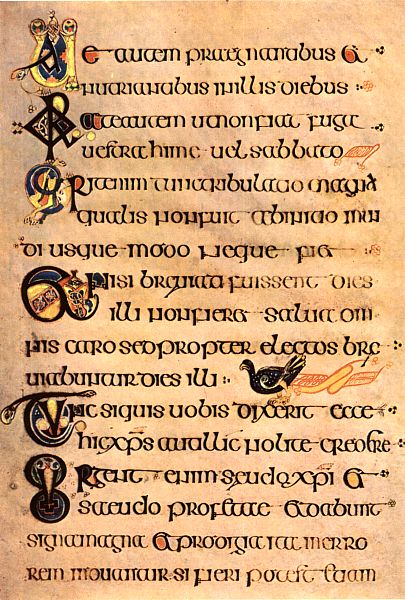 Uae autem praegnantibus &
nutriantibus inillis diebus
Orate autem ut non fiat fuga
uestra hime uel sabbato
Erit enim tunc tribulatio magna
qualis non fuit ab initio mun
di usque modo neque fi&
Et nisi breuiati fuissent dies
illi non fier& salua om
nis caro sed propter electos bre
uiabuntur dies illi
Tunc siquis uobis dixerit ecce
hic xp̄s aut illic nolite credere
Surgent enim seudoxp̄i &
saeudo profetae & dabunt
signa magna & prodigia ita in erro
rem mouantur si fieri potest etiam